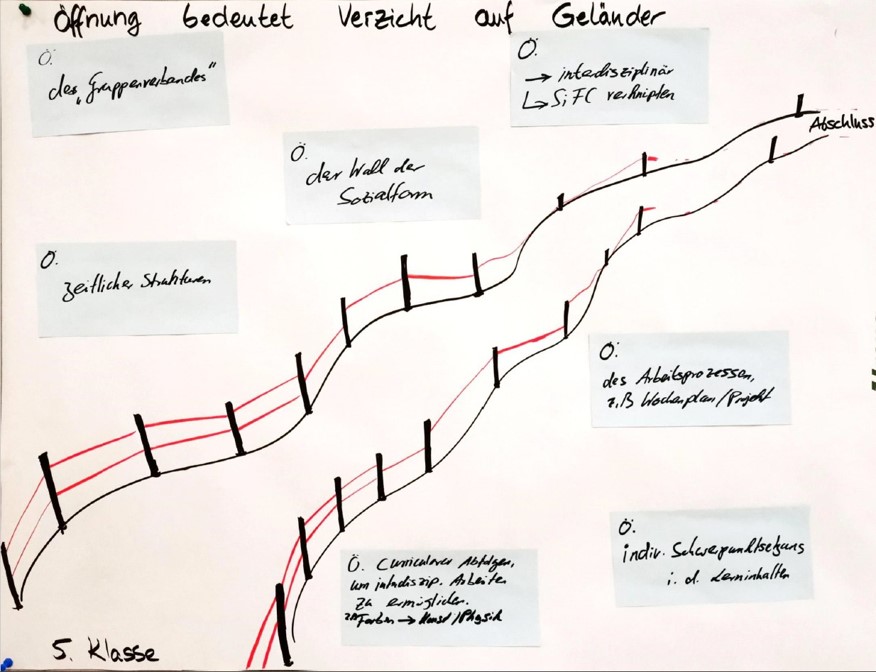 Öffnung bedeutet Verzicht auf Geländer
Ö.
des „Gruppenverbandes"
Ö.
→ interdisziplinär
↳ SiFC verknüpfen
Ö.
der Wall der
Sozialform
Abschluss
Ö.
zeitlicher Strukturen
Ö.
des Arbeitsprozesses,
z.B Wochenplan/Projekt
Ö.
indiv. Schwerpunktsetzung
i. d. Lerninhalten
Ö. Curricularer Abfolgen,
um interdiszip. Arbeiten
zu ermöglichen.
Farben → Kunst/Physik
5. Klasse